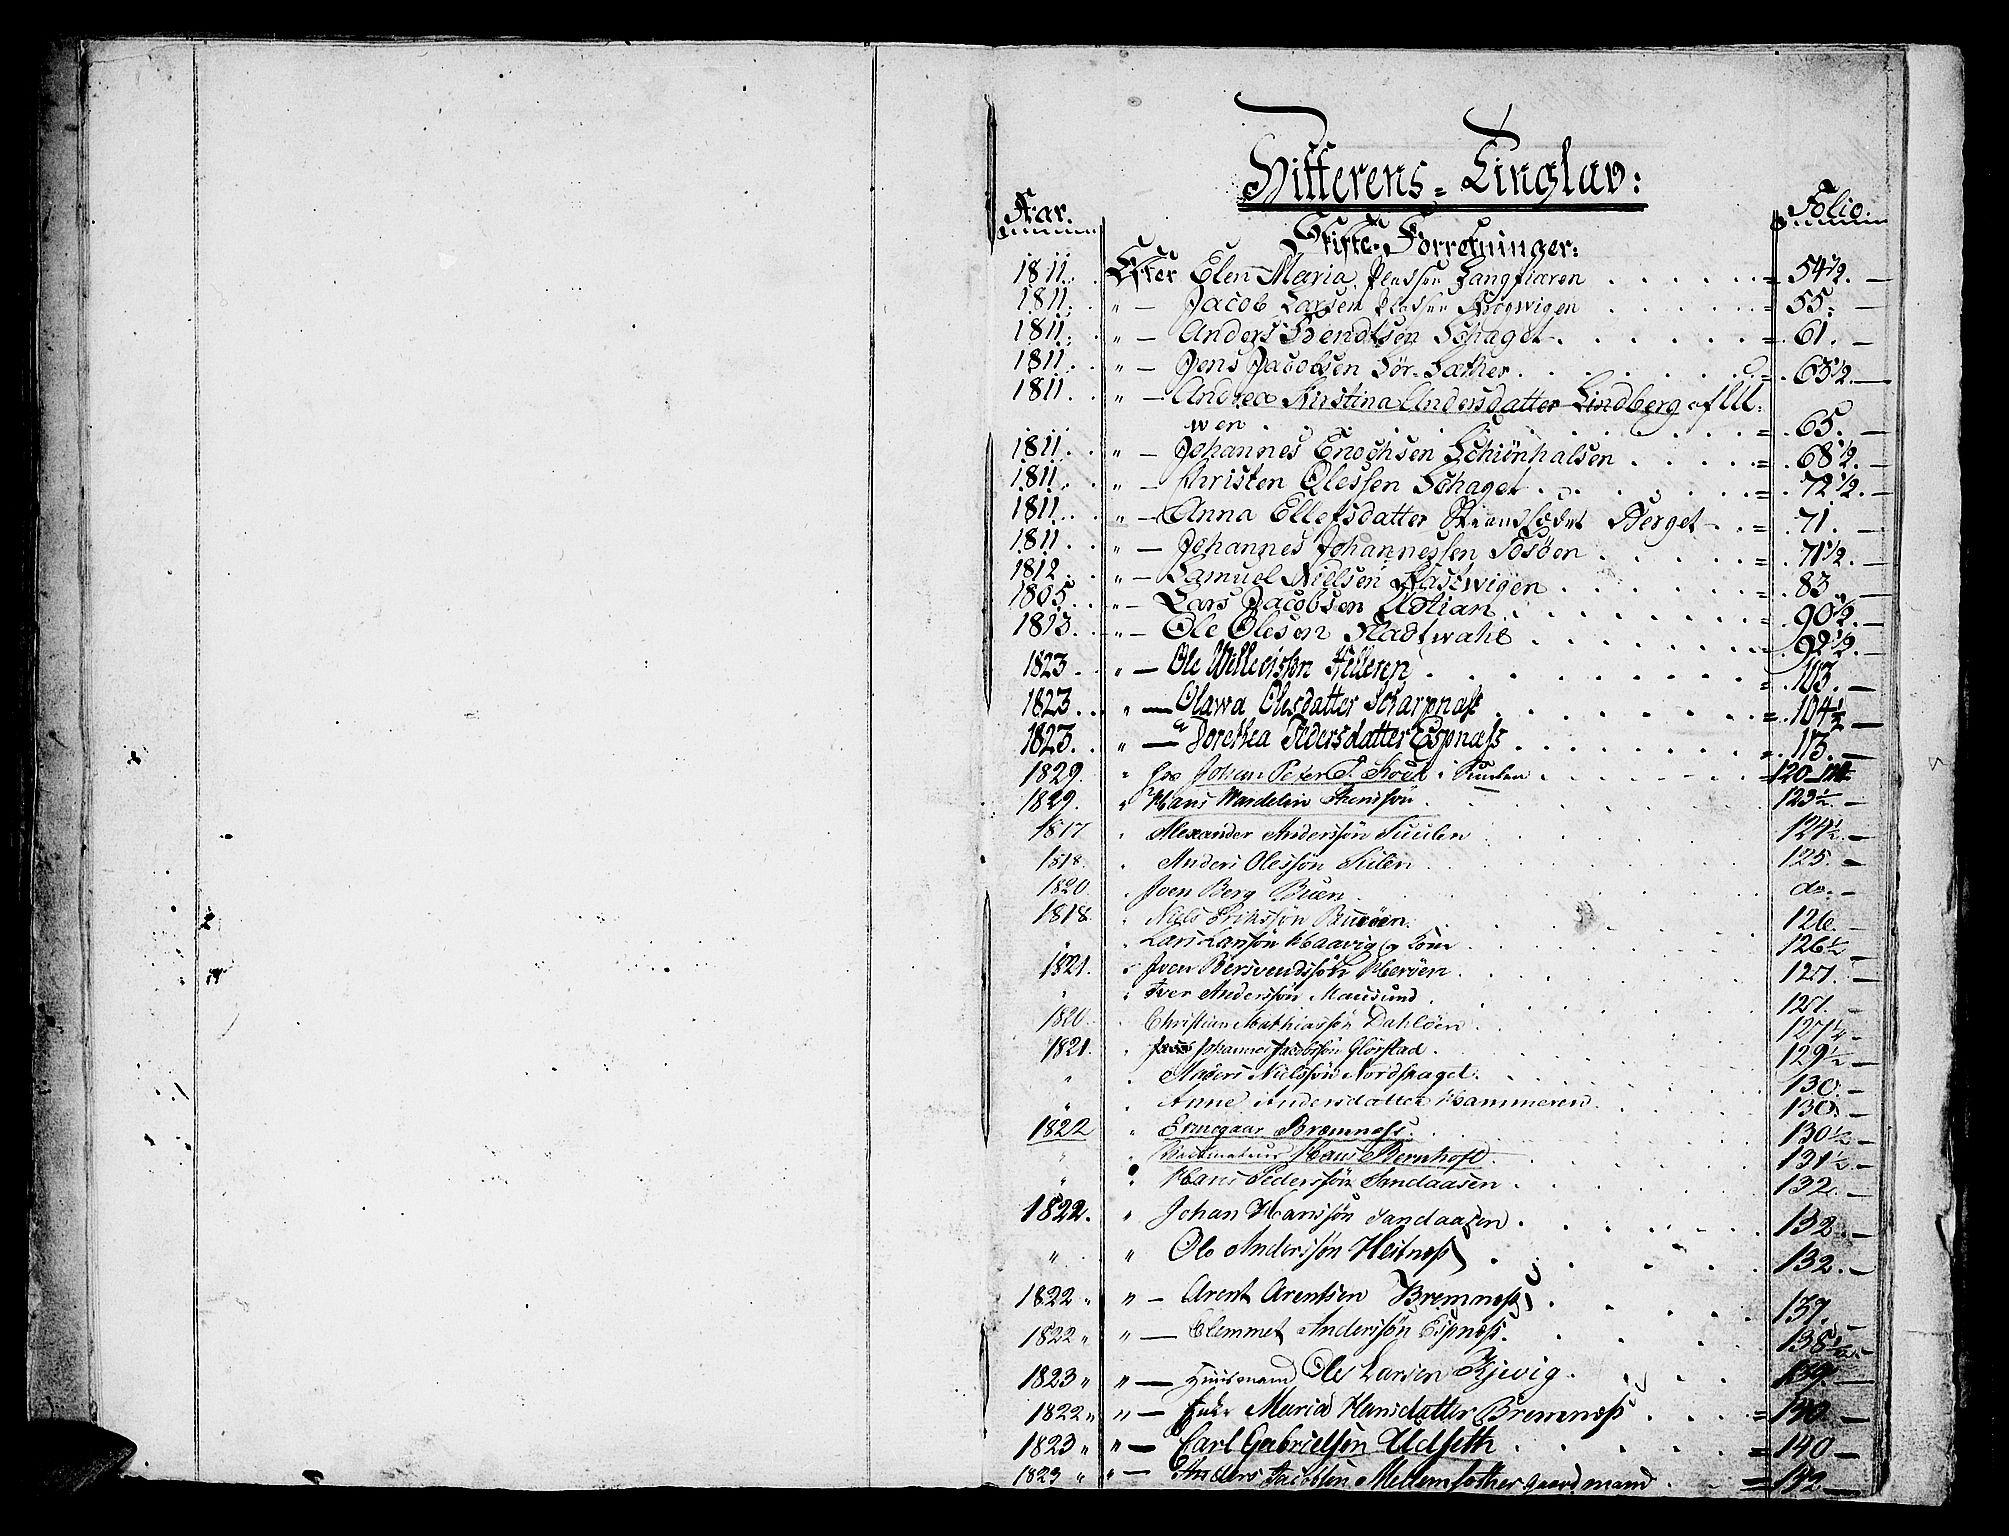 Hitterens-Tinglav:
Aar. Folio
Skifte-Forretninger:
1811. Efter Elen Maria Pladsen Langfiæren = 54½.
1811. " — Jacob Larsen Pladsen Krogwigen = 55.
1811. " — Anders Bendtsen Schaget = 61.
1811. " — Jens Jacobsen Sør-Sæther = 63½.
1811. " — Andrea Kirstina Andersdatter Lindberg af Ul-
wen = 65.
1811. " — Johannes Enochsen Schiönhalsen = 68½.
1811. " — Christen Olessen Schaget = 72½.
1811. " — Anna Ellefsdatter Strandsædet Berget = 71.
1811. " — Johannes Johannessen Tosöen = 71½.
1812. " — Samuel Nielsen Hastwigen = 83.
1805. " — Lars Jacobsen Ulvan = 90½.
1813. " — Ole Olesen Kladtwahl = 92½.
1823 " — Ole Willevissøn Helleren = 103.
1823. " — Olawa Olesdatter Scharpnæss = 104½
1823. " — Dorethea Pedersdatter Espnæss = 113.
1829. " Johan Peter P. Koch i Suulen = 120
1829. " Hans Wandelin Stenssøn 123½.
1817 " Alexander Anderssøn Suulen 124½
1818 " Anders Olessøn Sulen 125.
1820. " Iven Berg Buen do.
1818. " Niels Erikssøn Bueöen 126.
" Lars Larssøn Haavig og Kone 126½
1821. " Iven Bersvendssøn Herøen 127.
" " Iver Anderssøn Mausund 127.
1820. " Christian Mathiassøn Dahløen 127½
1821. " Johannes Jacobssøn Glørstad 129½
" " Anders Nielssøn Nordskaget 130.
" " Anne Andersdatter Hammeren 130.
1822 " Ermegaar Bremness 130½
" " Hans Bernhoft 131½
" " Hans Pederssøn Sandaasen 132.
1822. " Johan Hanssøn Sandaasen 132
" " Ole Anderssøn Hestness 132.
1822 " " — Arent Arentsen Bremness 137.
1822 " " — Clemmet Anderssøn Espness 138½
1823 " " — Huusmand Ole Larsen Kjevig 139.
1822 " " — Enke Maria Hansdatter Bremness = 140
1823 " " — Carl Gabrielsøn Udseth = 140
1823 " " — Anders Jacobsen Mellemsæther Gaardmand = 142